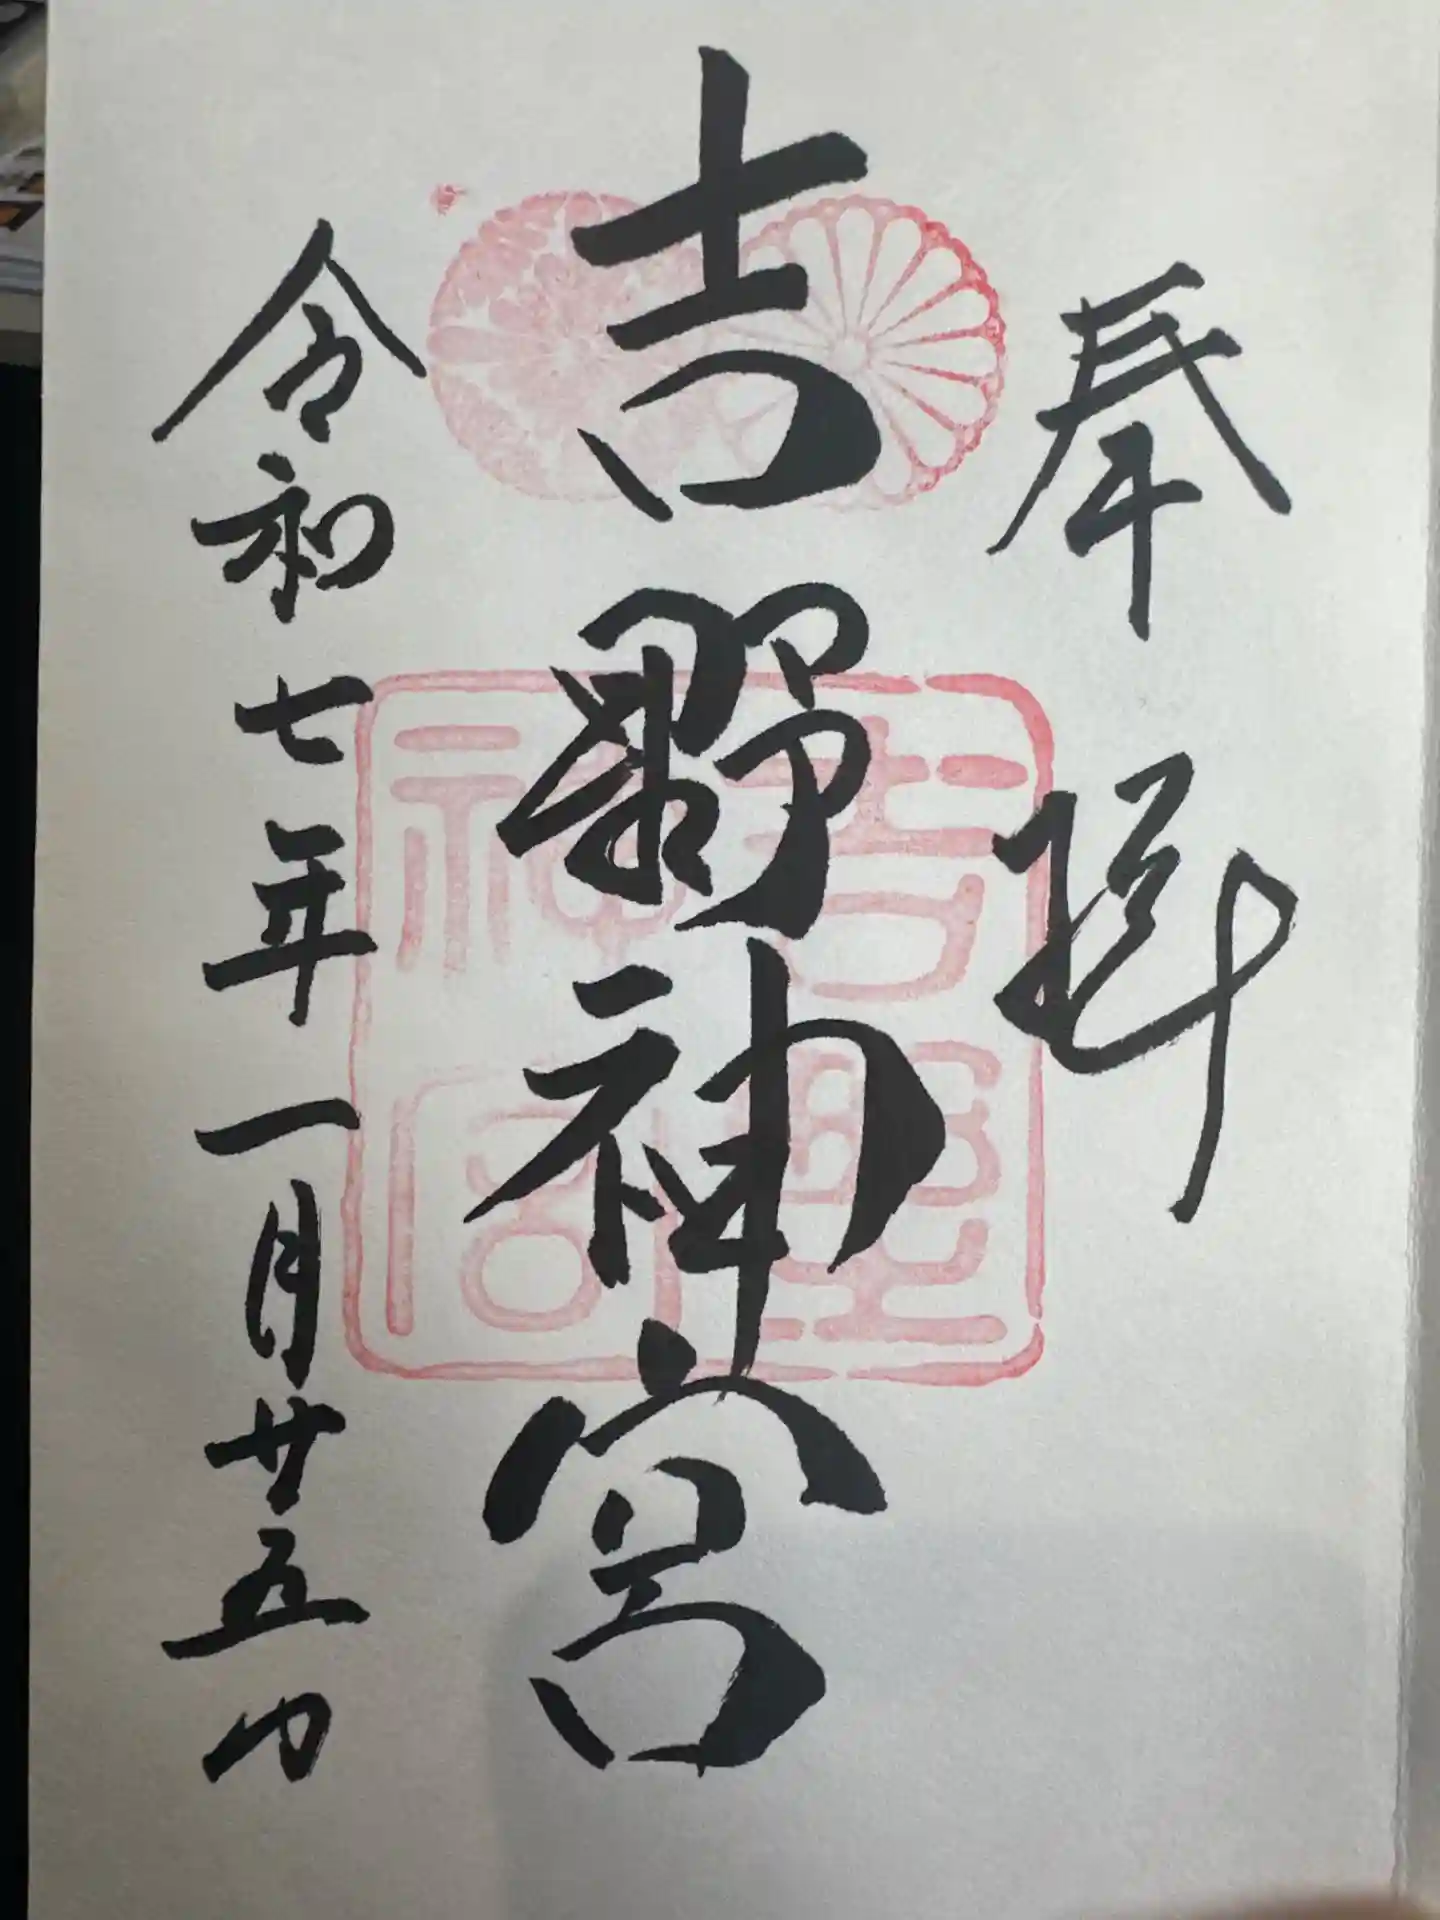 奉拝
吉野神宮
令和七年一月廿五日
吉野
神宮